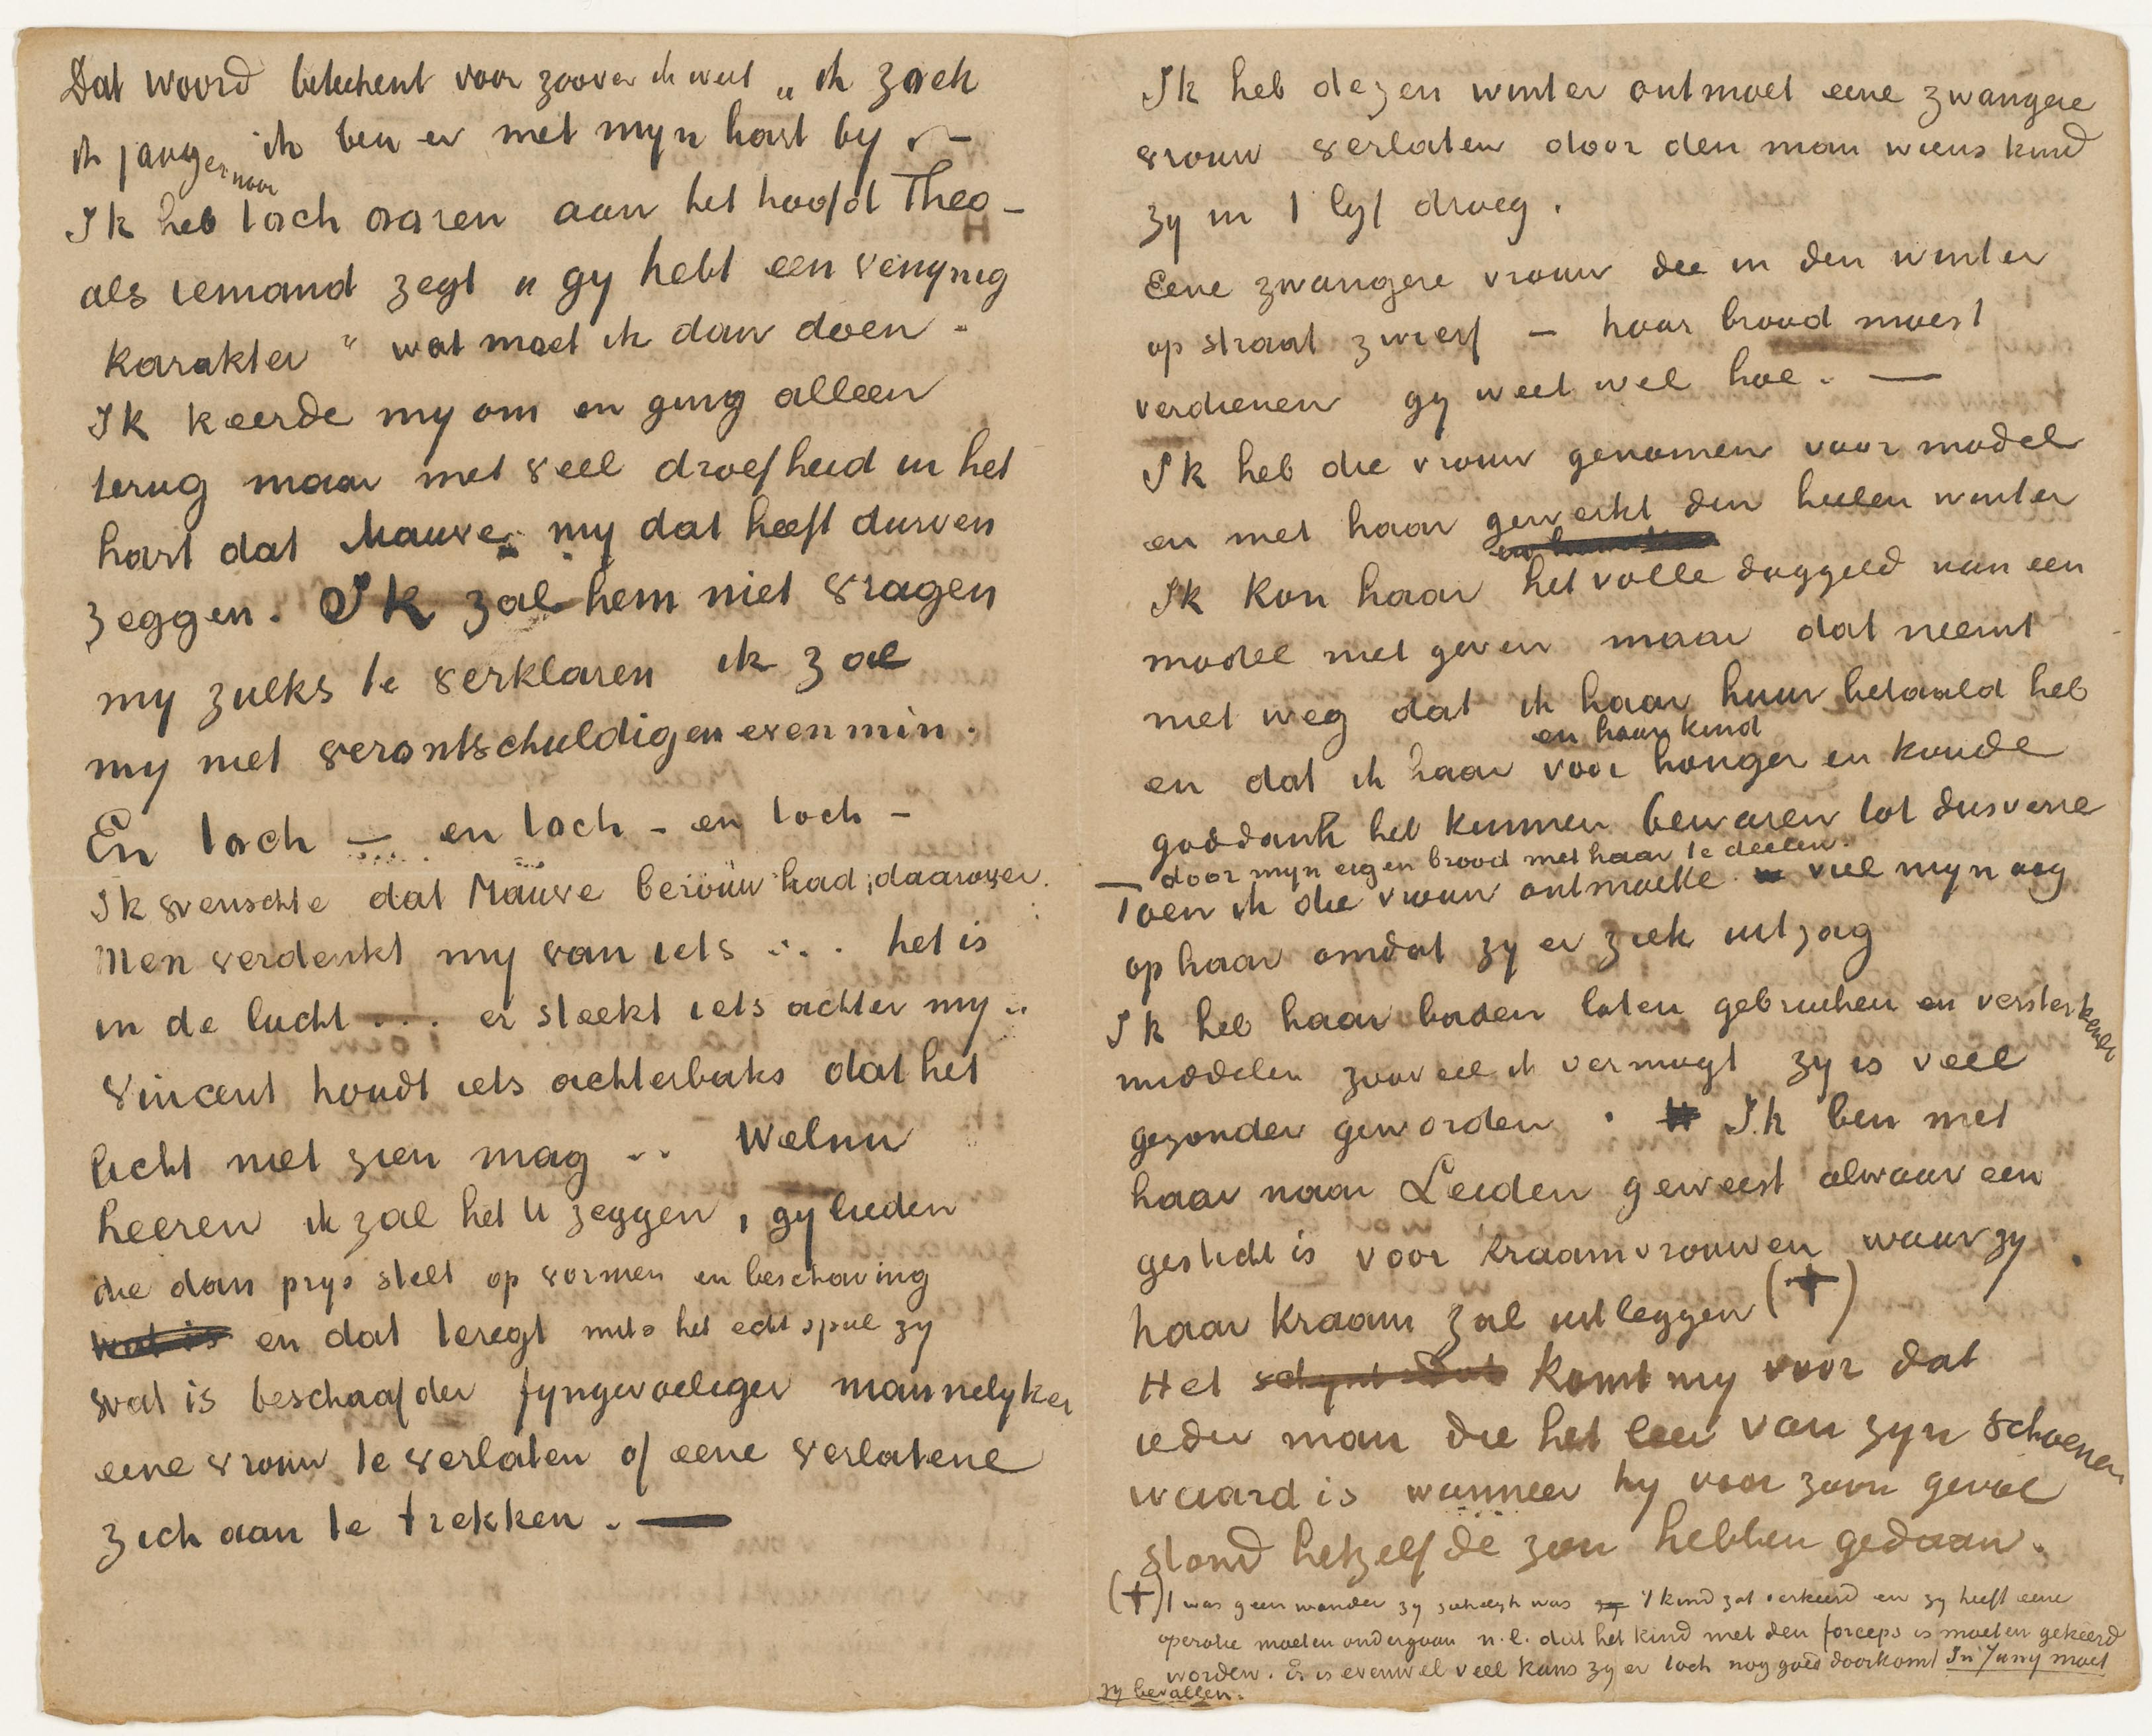 Dat woord beteekent voor zoover ik weet „ik zoek
ik jaag er naar ik ben er met mijn hart bij." –
Ik heb toch ooren aan het hoofd Theo –
als iemand zegt „gij hebt een venijnig
karakter" wat moet ik dan doen.
Ik keerde mij om en ging alleen
terug maar met veel droefheid in het
hart dat Mauve mij dat heeft durven
zeggen. Ik zal hem niet vragen
mij zulks te verklaren ik zal
mij niet verontschuldigen evenmin.
En toch — en toch – en toch –
Ik wenschte dat Mauve berouw had daarover.
Men verdenkt mij van iets . . . het is
in de lucht . . . er steekt iets achter mij ..
Vincent houdt iets achterbaks dat het
licht niet zien mag .. Welnu
heeren ik zal het U zeggen, gij lieden
die dan prijs stelt op vormen en beschaving
wat is en dat teregt mits het echt spul zij
wat is beschaafder fijngevoeliger mannelijker
eene vrouw te verlaten of eene verlatene
zich aan te trekken. —
Ik heb dezen winter ontmoet eene zwangere
vrouw verlaten door den man wiens kind
zij in 't lijf droeg.
Eene zwangere vrouw die in den winter
op straat zwierf – haar brood moest
verdienen gij weet wel hoe. —
Ik heb die vrouw genomen voor model
en met haar gewerkt den heelen winter
Ik kon haar het volle daggeld van een
model niet geven maar dat neemt
niet weg dat ik haar huur betaald heb
en dat ik haar en haar kind voor honger en koude
goddank heb kunnen bewaren tot dusverre
door mijn eigen brood met haar te deelen.
— Toen ik die vrouw ontmoette viel mijn oog
op haar omdat zij er ziek uitzag
Ik heb haar baden laten gebruiken en versterkende
middelen zooveel ik vermogt zij is veel
gezonder geworden . Ik ben met
haar naar Leiden geweest alwaar een
gesticht is voor kraamvrouwen waar zij
haar kraam zal uitleggen (+)
Het schijnt dat komt mij voor dat
ieder man die het leer van zijn schoenen
waard is wanneer hij voor zoon geval
stond hetzelfde zou hebben gedaan.
(+) 't was geen wonder zij sukkelijk was zij 't kind zat verkeerd en zij heeft eene
operatie moeten ondergaan n.l. dat het kind met den forceps is moeten gekeerd
worden. Er is evenwel veel kans zij er toch nog goed doorkomt In Junij moet
zij bevallen.